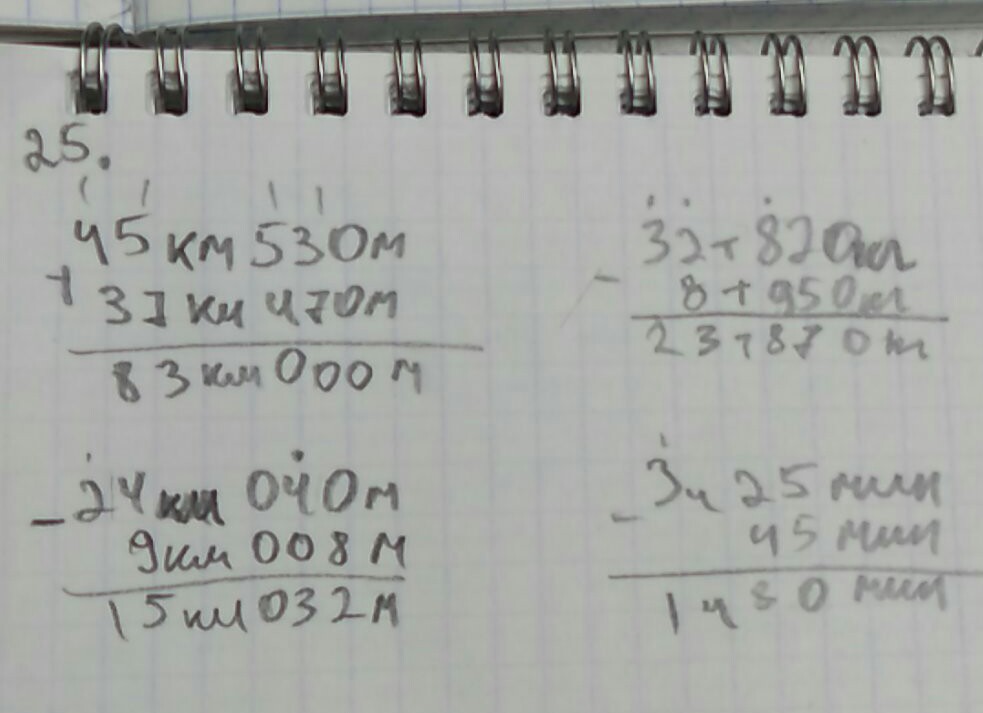 25.
45 км 530м
+
37 км 470м
83 км 000 м
32т 820кг
-
8т 950кг
23т 870кг
24 км 040м
-
9км 008 м
15 км 032м
3ч 25 мин
-
45 мин
1ч 80 мин